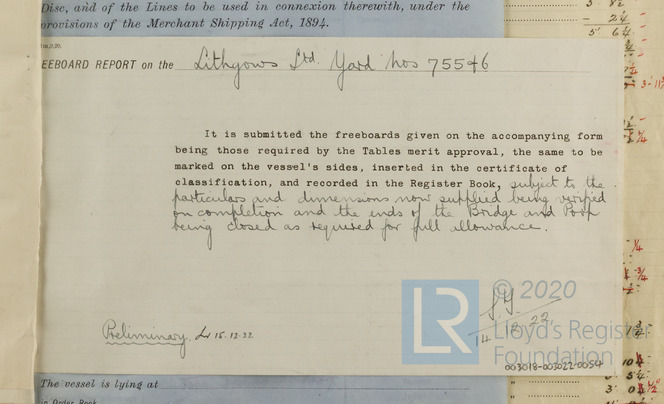 Disc, and of the Lines to be used in connexion therewith, under the
provisions of the Merchant Shipping Act, 1894.
EEBOARD REPORT on the Lithgows Ltd. Yard Nos 755+6
It is submitted the freeboards given on the accompanying form
being those required by the Tables merit approval, the same to be
marked on the vessel's sides, inserted in the certificate of
classification, and recorded in the Register Book, subject to the
particulars and dimensions now supplied being verified
on completion and the ends of the Bridge and Poop
being closed as required for full allowance.
Preliminary. 15.12.22.
14 12 22
LR
© 2020
Lloyd's Register
Foundation
003018-003022-0054
The vessel is lying at
in Order Book